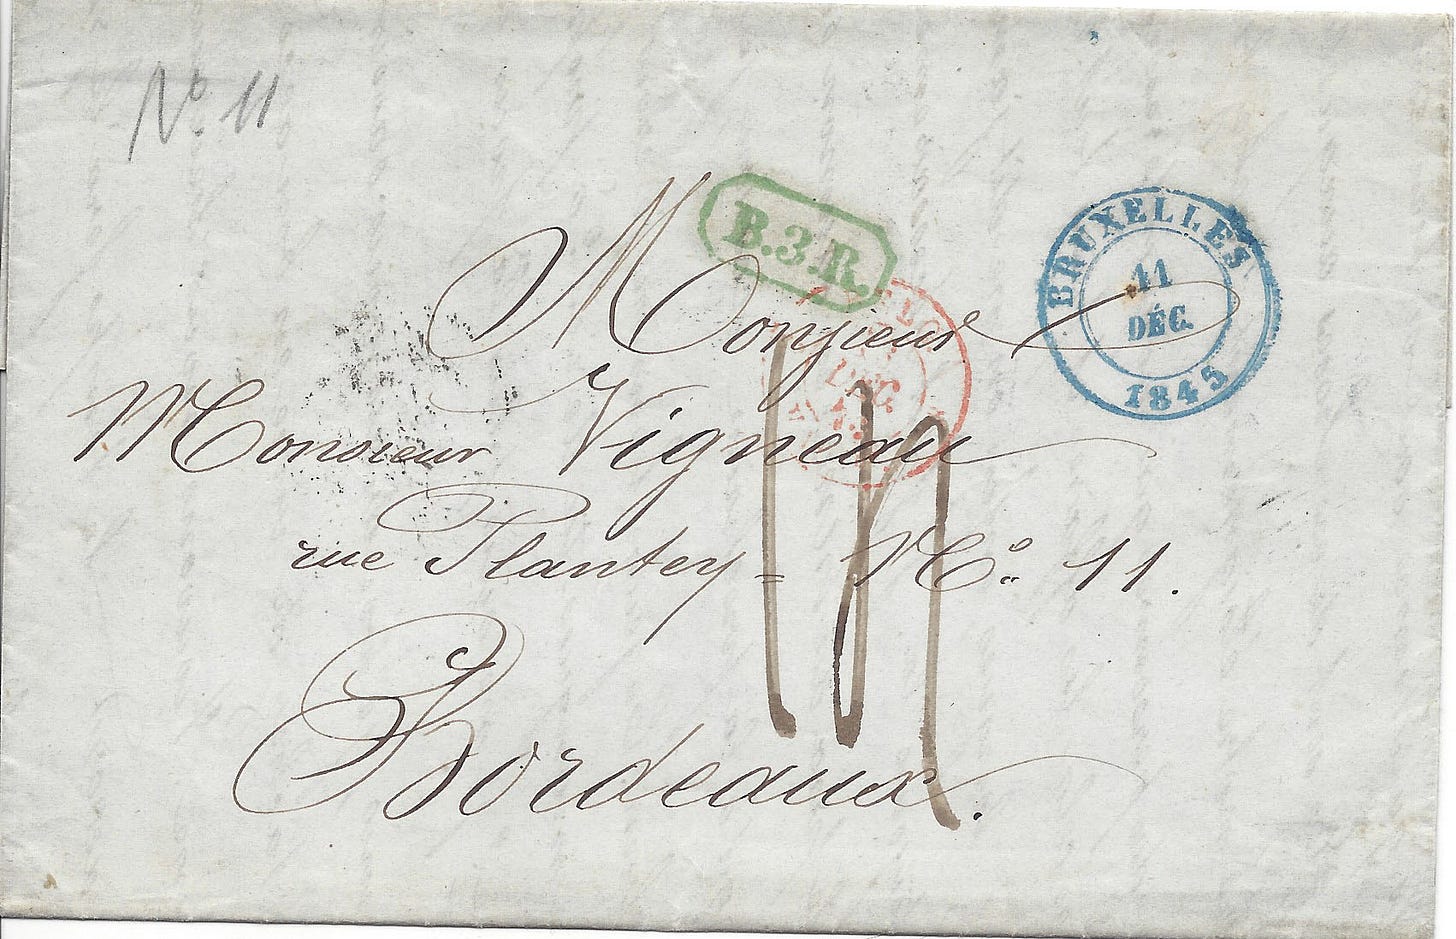 No. 11
B.3.R.
BRUXELLES
11
DÉC.
1845
Monsieur
Monsieur Vigneau
rue Plantey = No. 11.
Bordeaux.